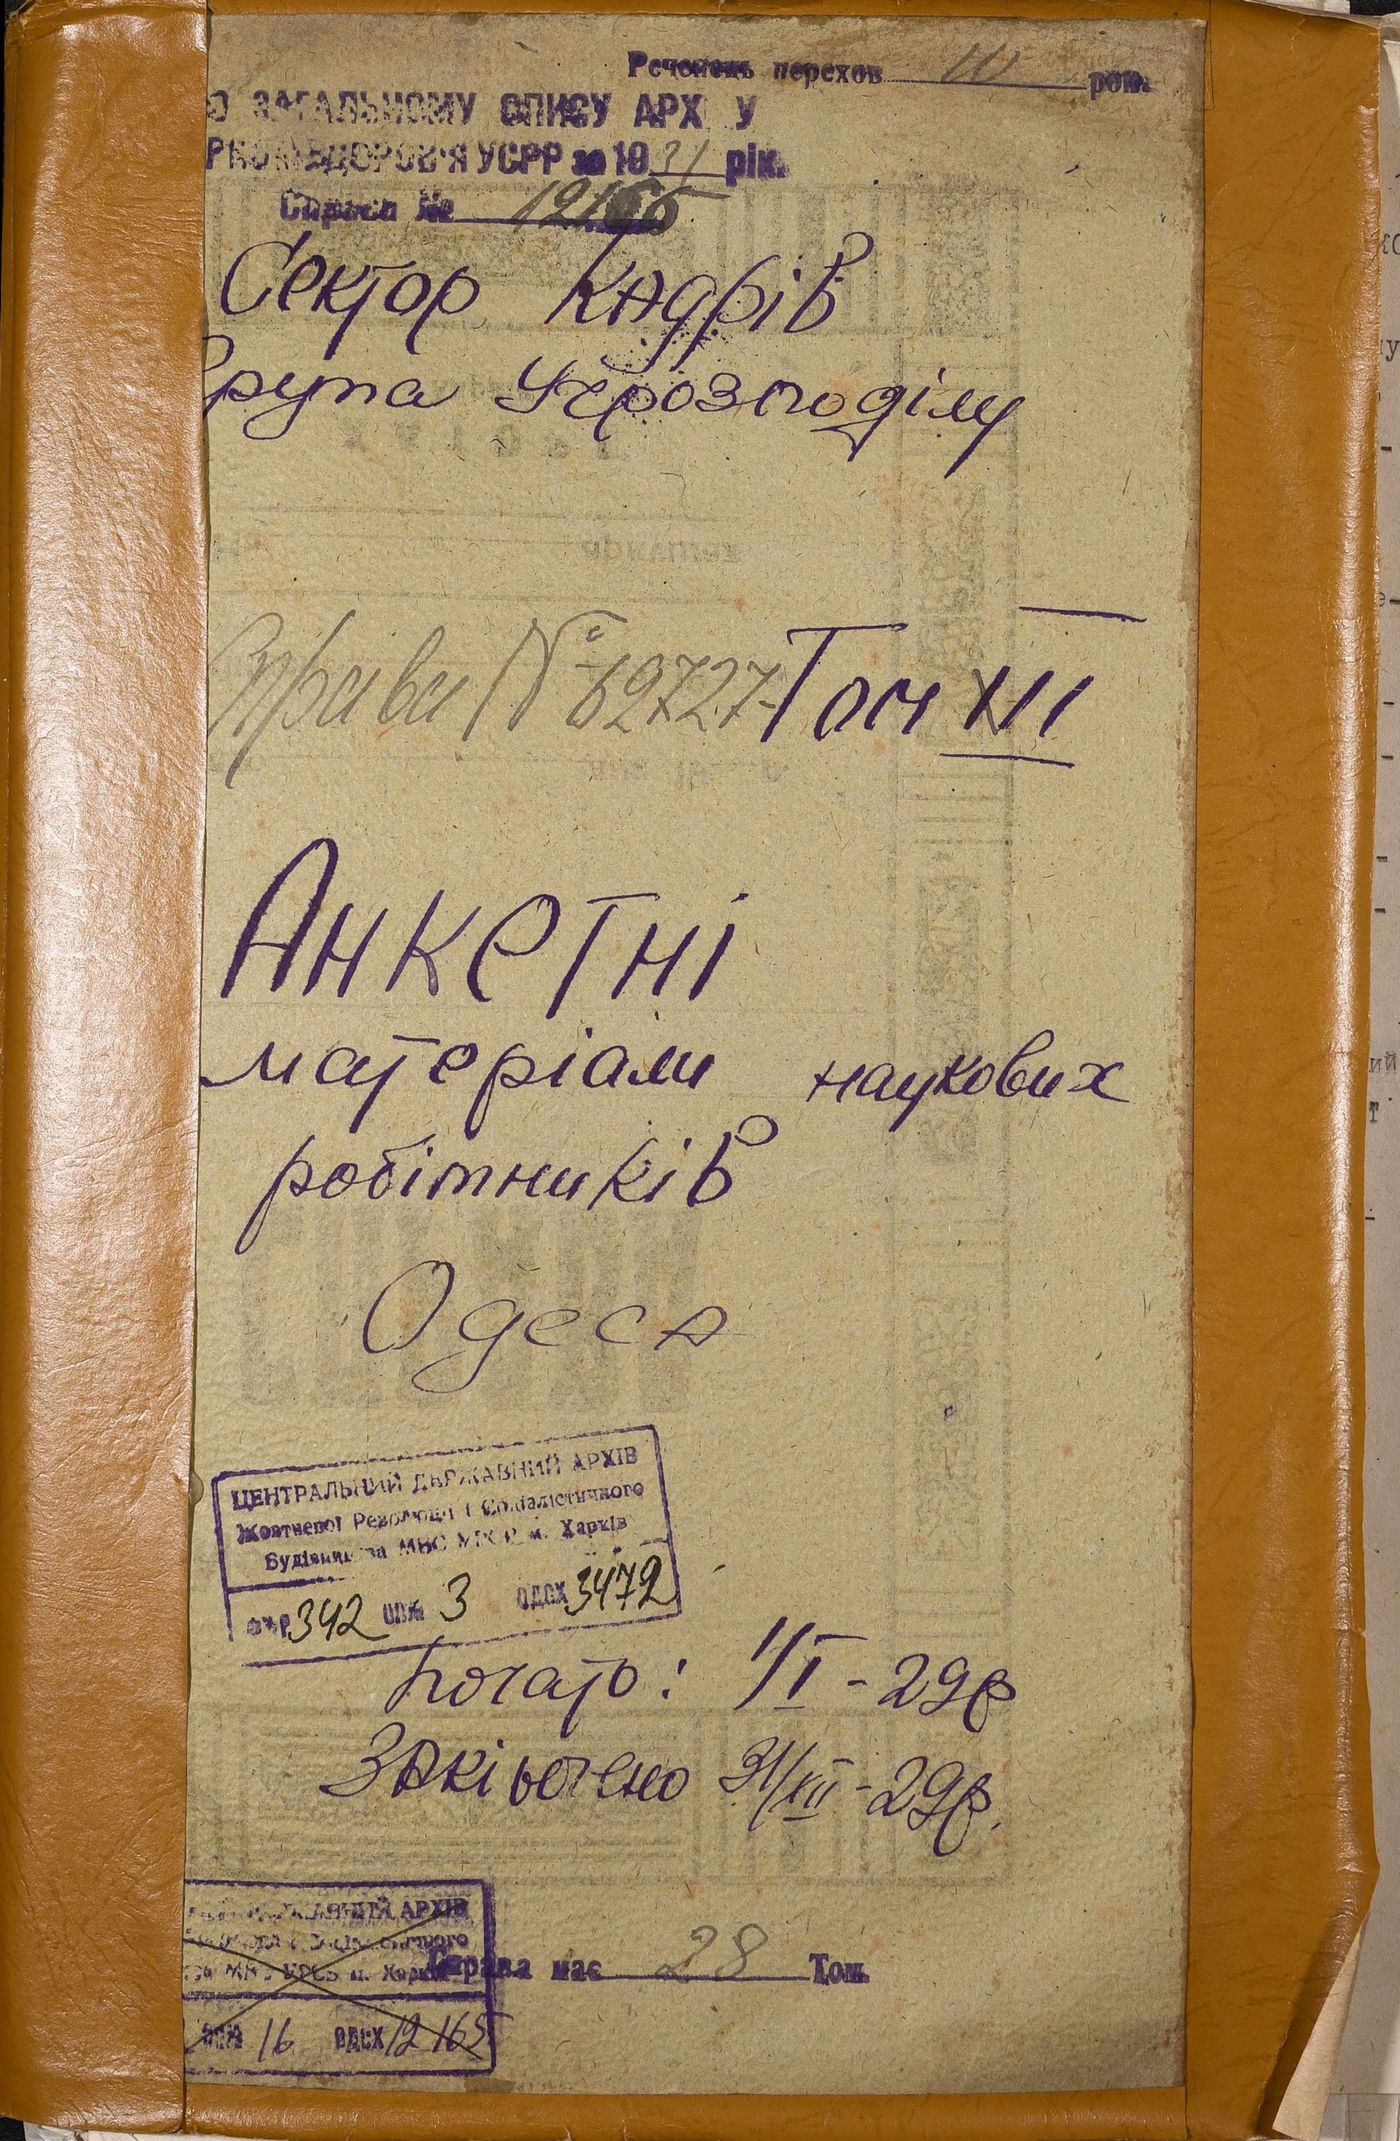 Реченець перехов. 10 рок.
О ЗАГАЛЬНОМУ ОПИСУ АРХ У
РКОМЗДОРОВ'Я УСРР за 1931 рік.
Справа №
Сектор Кадрів
Група Учрозподілу
Справи № 62727 Том XII
Анкетні
матеріали наукових
робітників
Одеса
ЦЕНТРАЛЬНИЙ ДЕРЖАВНИЙ АРХІВ
Жовтневої Революції і Соціалістичного
Будівництва МВС УРСР м. Харків
ФОНД 342 ОПИС 3 ОДСХ 3472
Почато: 1/I - 29р
Закінчено 31/XII - 29р.
ДЕРЖАВНИЙ АРХІВ
м. Харків
Справа має 28 Том.
ОПИС 16 ОДСХ 12165